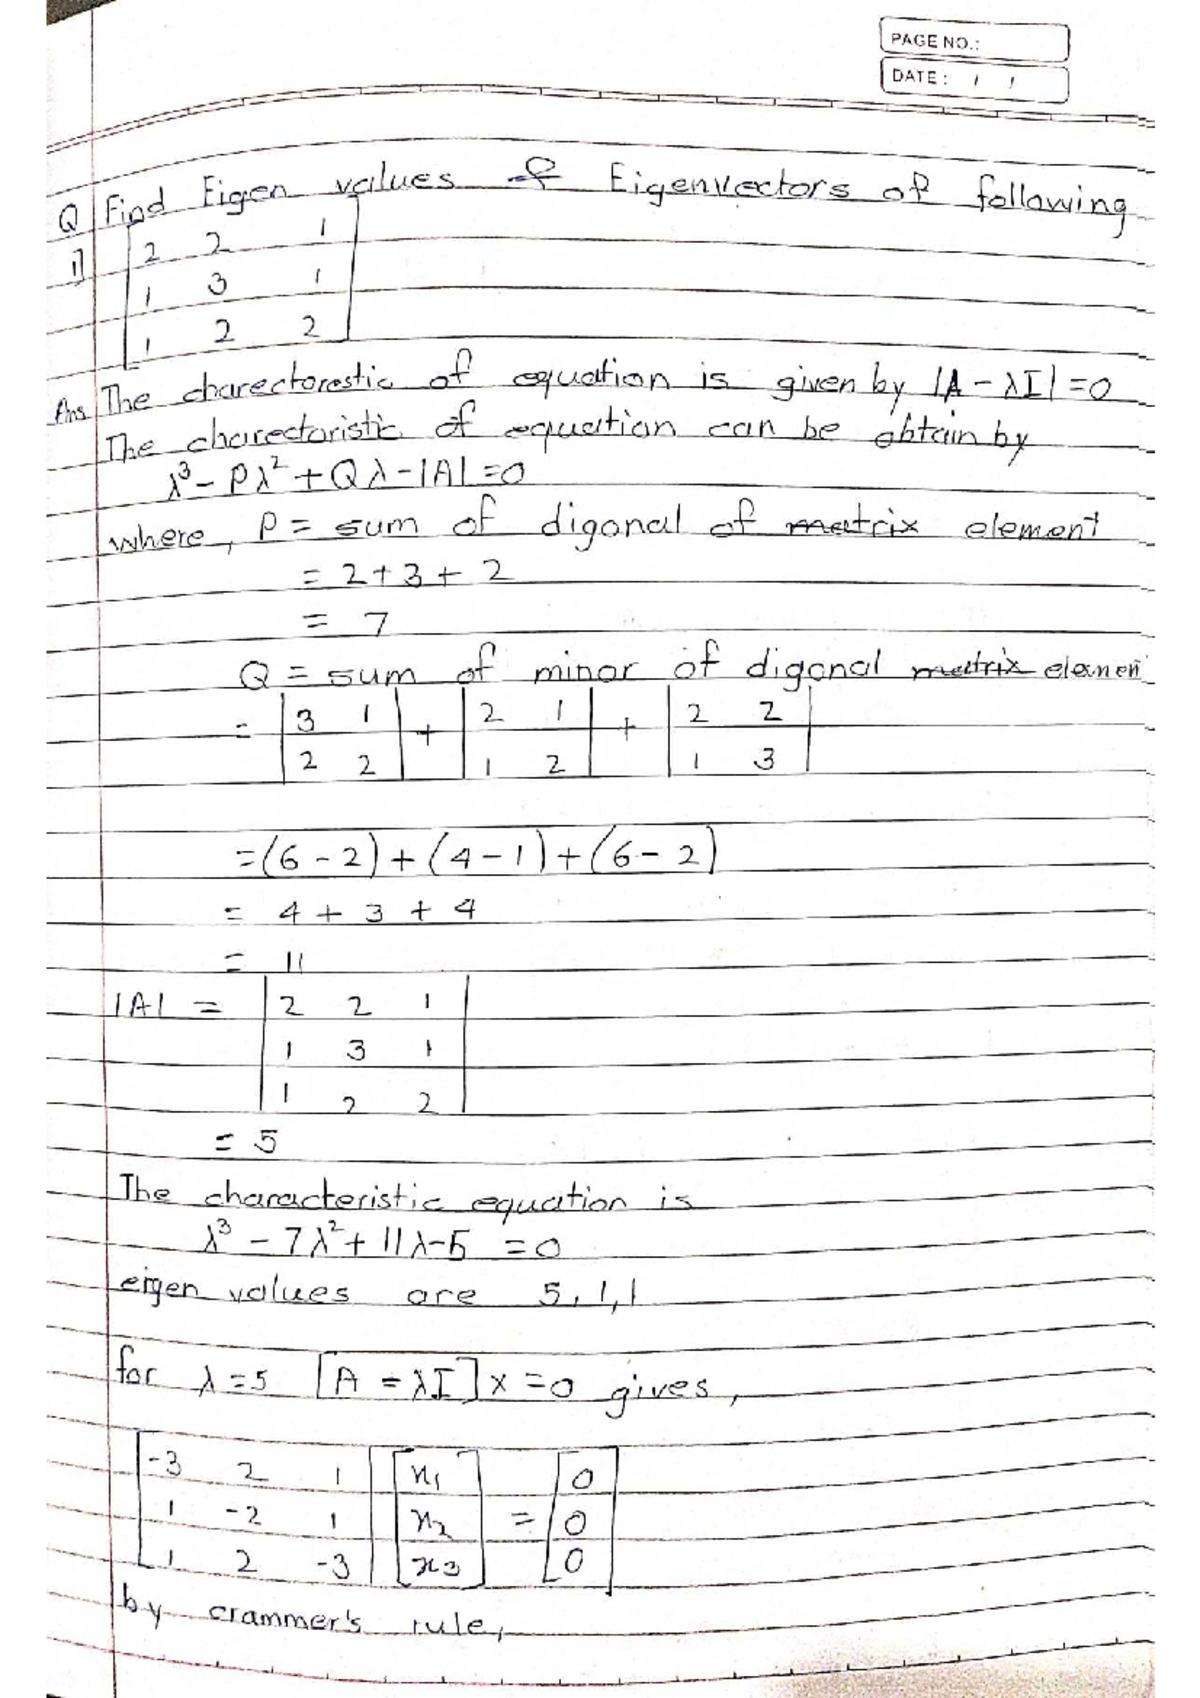 PAGE NO.:
DATE : / /
Q Find Eigen values & Eigenvectors of following
1] 2 2 1
1 3 1
1 2 2
Ans The charectorestic of equation is given by |A - λI| = 0
The charectoristic of equation can be obtain by
λ³ - Pλ² + Qλ - |A| = 0
where, P = sum of digonal of matrix element
= 2 + 3 + 2
= 7
Q = sum of minor of digonal matrix elemen
= |3 1| + |2 1| + |2 2|
|2 2| |1 2| |1 3|
= (6 - 2) + (4 - 1) + (6 - 2)
= 4 + 3 + 4
= 11
|A| = |2 2 1|
|1 3 1|
|1 2 2|
= 5
The characteristic equation is
λ³ - 7λ² + 11λ - 5 = 0
eigen values are 5, 1, 1
for λ = 5 [A - λI] x = 0 gives,
[-3 2 1] [x₁] [0]
[1 -2 1] [x₂] = [0]
[1 2 -3] [x₃] [0]
by crammer's rule,